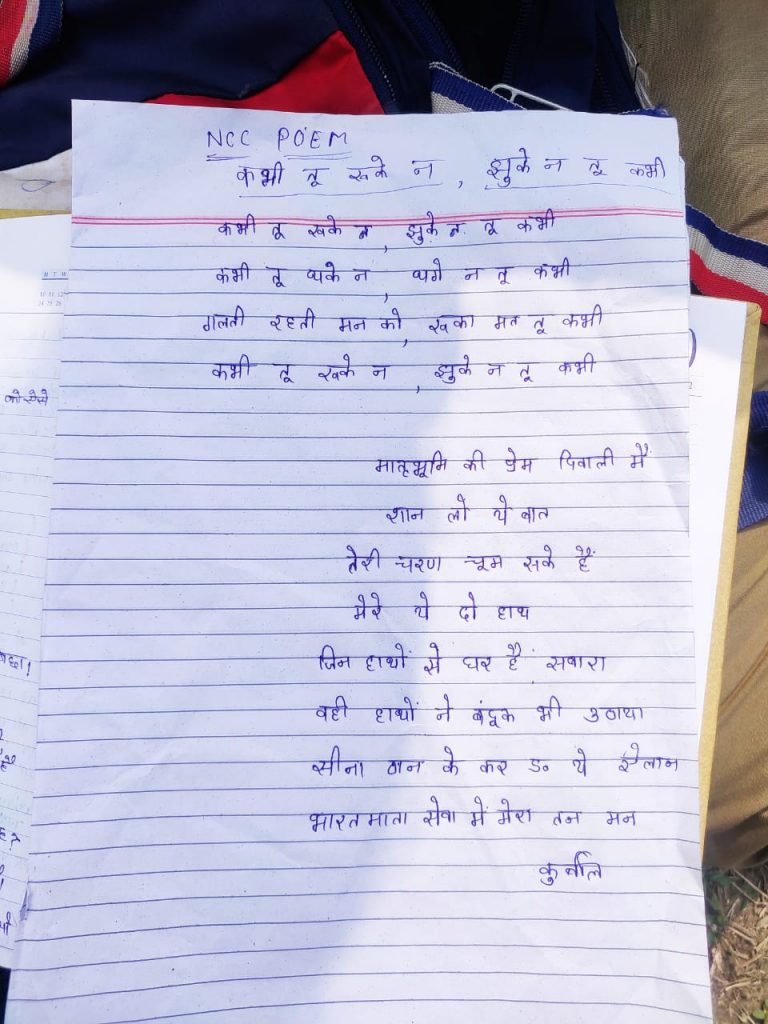 NCC POEM
कभी तू रुके न, झुके न तू कभी
कभी तू रुके न, झुके न तू कभी
कभी तू थके न, थमे न तू कभी
गलती रहती मन को, रुका मत तू कभी
कभी तू रुके न, झुके न तू कभी
मातृभूमि की प्रेम दिवाली में
शान लो ये बात
तेरी चरण चूम सके हैं
मेरे ये दो हाथ
जिन हाथों से घर हैं सवारा
वही हाथों ने बंदूक भी उठाया
सीना ठान के कर ड० ये ऐलान
भारत माता सेवा में मेरा तन मन